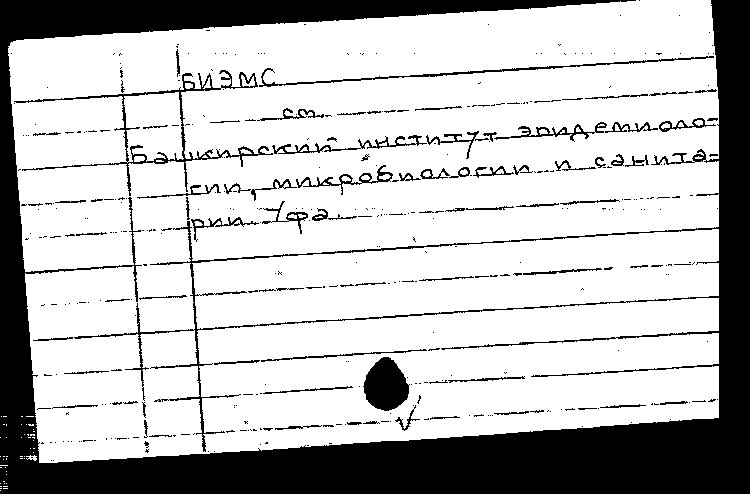 БИЭМС
см.
Башкирский институт эпидемиоло-
гии, микробиологии и санита-
рии. Уфа.